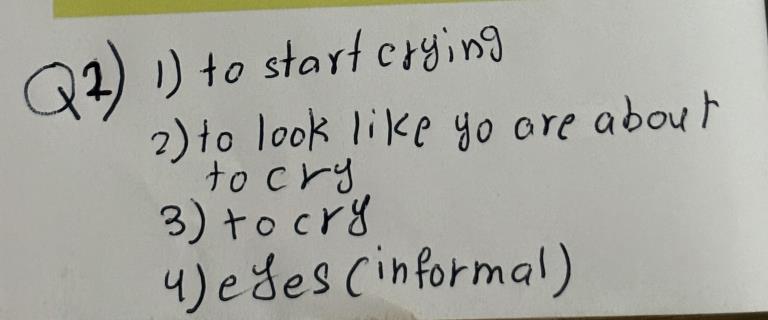 Q2) 1) to start crying
2) to look like yo are about
to cry
3) to cry
4) eyes (informal)